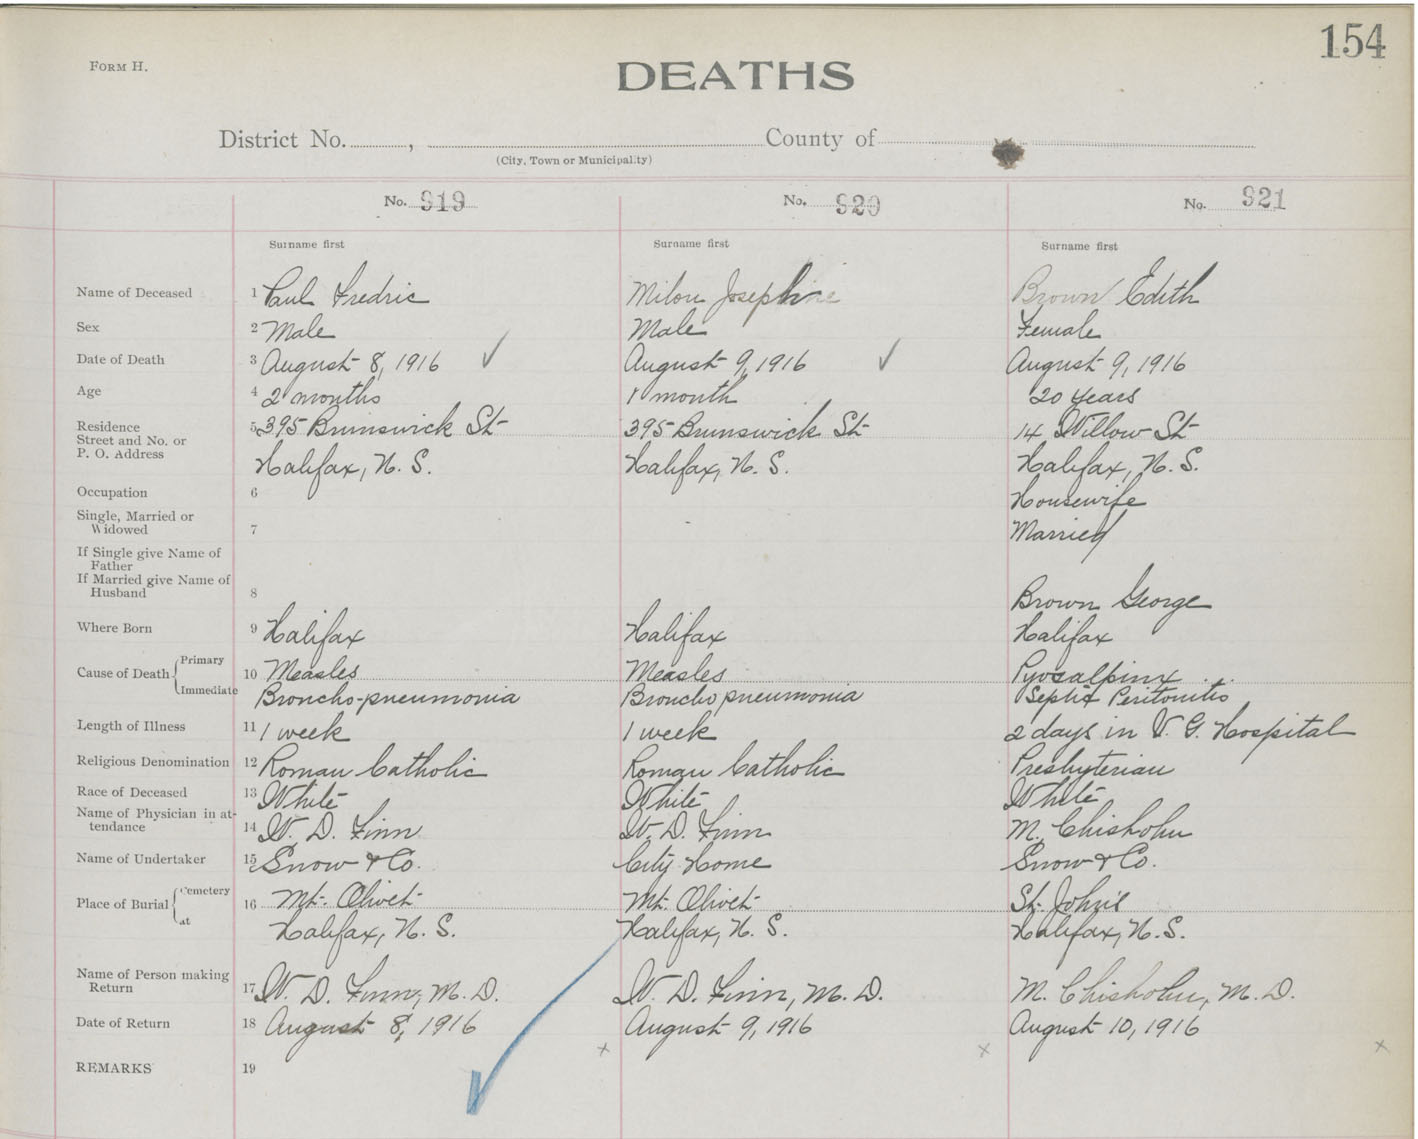 154
FORM H.
DEATHS
District No. , County of
(City, Town or Municipality)
No. 919 No. 920 No. 921
Surname first Surname first Surname first
Name of Deceased 1 Paul Fredric Milou Josephine Brown Edith
Sex 2 Male Male Female
Date of Death 3 August 8, 1916 ✓ August 9, 1916 ✓ August 9, 1916
Age 4 2 months 1 month 20 years
Residence
Street and No. or
P. O. Address 5 395 Brunswick St 395 Brunswick St 14 Willow St
Halifax, N. S. Halifax, N. S. Halifax, N. S.
Occupation 6 Housewife
Single, Married or
Widowed 7 Married
If Single give Name of
Father
If Married give Name of
Husband 8 Brown George
Where Born 9 Halifax Halifax Halifax
Cause of Death Primary 10 Measles Measles Pyosalpinx
Immediate Broncho-pneumonia Broncho pneumonia Septic Peritonitis
Length of Illness 11 1 week 1 week 2 days in V. G. Hospital
Religious Denomination 12 Roman Catholic Roman Catholic Presbyterian
Race of Deceased 13 White White White
Name of Physician in at-
tendance 14 W. D. Finn W. D. Finn M. Chisholm
Name of Undertaker 15 Snow & Co. City Home Snow & Co.
Place of Burial Cemetery 16 Mt. Olivet Mt. Olivet St. John's
at Halifax, N. S. Halifax, N. S. Halifax, N. S.
Name of Person making
Return 17 W. D. Finn, M. D. W. D. Finn, M. D. M. Chisholm, M. D.
Date of Return 18 August 8, 1916 August 9, 1916 August 10, 1916
x x x
REMARKS 19